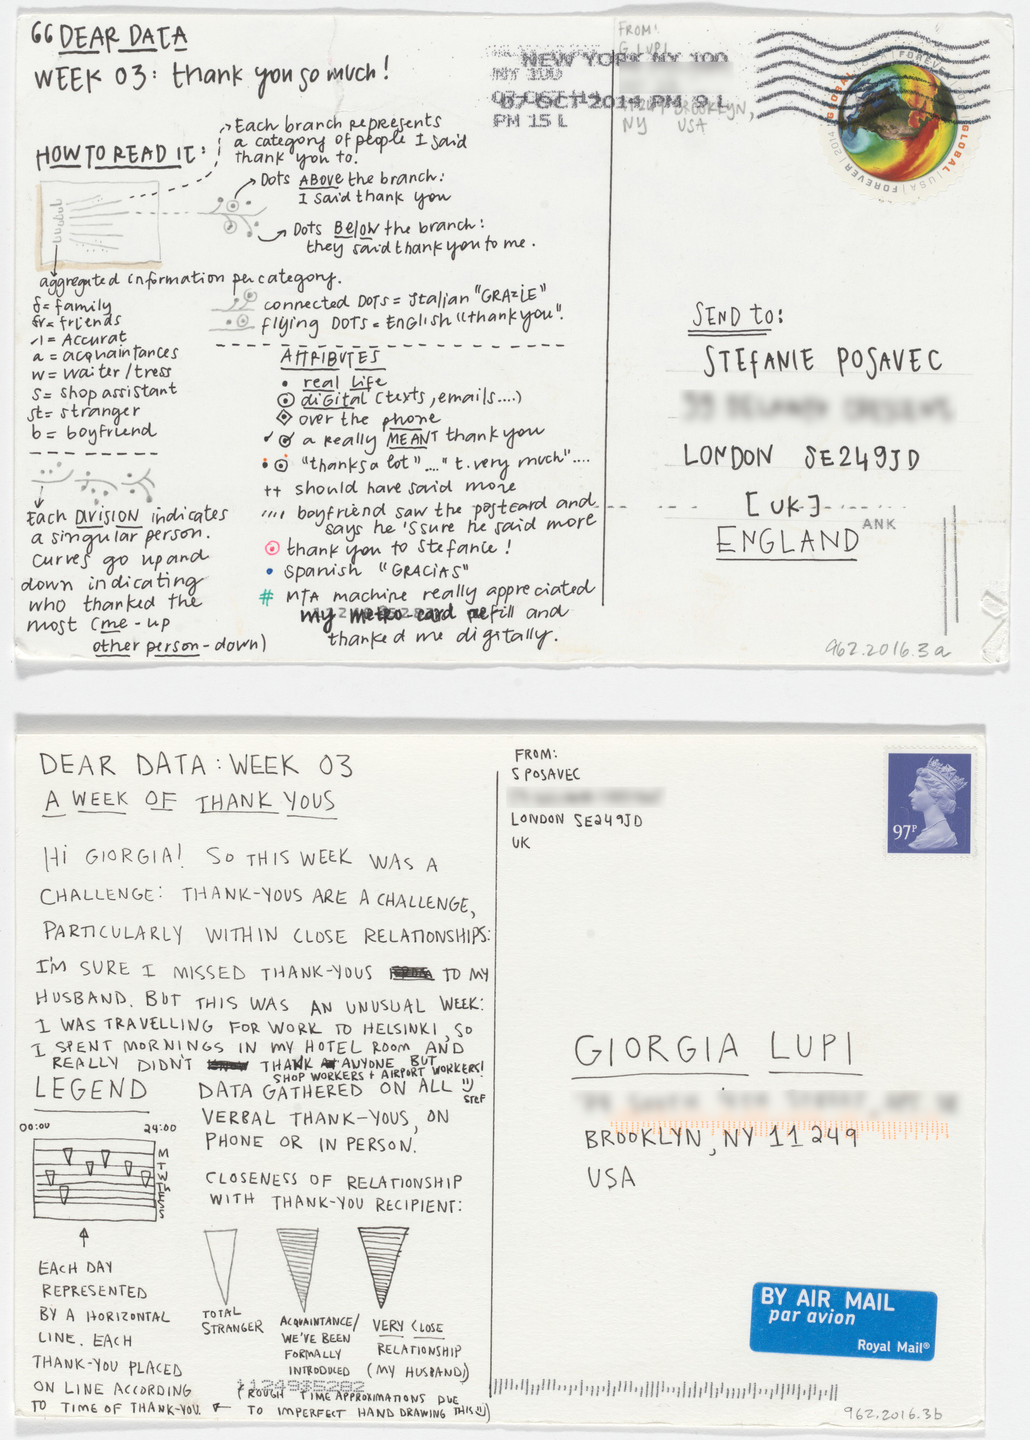 GG DEAR DATA
WEEK 03: thank you so much!
HOW TO READ IT:
Each branch represents
a category of people I said
thank you to.
Dots ABOVE the branch:
I said thank you
Dots BELOW the branch:
they said thank you to me.
aggregated information per category.
f = family
fr = friends
= Accurat
a = acquaintances
w = waiter/tress
s = shop assistant
st = stranger
b = boyfriend
connected DOTS = italian "GRAZIE"
flying DOTS = English "thank you".
Each DIVISION indicates
a singular person.
Curves go up and
down indicating
who thanked the
most (me - up
other person - down)
ATTRIBUTES
real life
digital (texts, emails....)
over the phone
a really MEANT thank you
"thanks a lot"...." t. very much"....
++ should have said more
boyfriend saw the postcard and
says he 's sure he said more
thank you to Stefanie!
Spanish "GRACIAS"
# MTA machine really appreciated
my metro-card refill and
thanked me digitally.
FROM:
G. LUPI
BROOKLYN,
NY USA
NEW YORK NY 100
07 OCT 2014 PM 9 L
NY 100
PM 15 L
GLOBAL FOREVER
GLOBAL | USA | FOREVER | 2014
SEND to:
STEFANIE POSAVEC
LONDON SE249JD
[UK]
ENGLAND
ANK
962.2016.3a
DEAR DATA: WEEK 03
A WEEK OF THANK YOUS
HI GIORGIA! SO THIS WEEK WAS A
CHALLENGE: THANK-YOUS ARE A CHALLENGE,
PARTICULARLY WITHIN CLOSE RELATIONSHIPS:
I'M SURE I MISSED THANK-YOUS TO MY
HUSBAND. BUT THIS WAS AN UNUSUAL WEEK:
I WAS TRAVELLING FOR WORK TO HELSINKI, SO
I SPENT MORNINGS IN MY HOTEL ROOM AND
REALLY DIDN'T THANK ANYONE BUT
SHOP WORKERS + AIRPORT WORKERS!
STEF
LEGEND
00:00 24:00
M
T
W
T
F
S
S
EACH DAY
REPRESENTED
BY A HORIZONTAL
LINE. EACH
THANK-YOU PLACED
ON LINE ACCORDING
TO TIME OF THANK-YOU.
DATA GATHERED ON ALL
VERBAL THANK-YOUS, ON
PHONE OR IN PERSON.
CLOSENESS OF RELATIONSHIP
WITH THANK-YOU RECIPIENT:
TOTAL
STRANGER
ACQUAINTANCE/
WE'VE BEEN
FORMALLY
INTRODUCED
VERY CLOSE
RELATIONSHIP
(MY HUSBAND)
(ROUGH TIME APPROXIMATIONS DUE
TO IMPERFECT HAND DRAWING THIS)
FROM:
S POSAVEC
LONDON SE249JD
UK
97P
GIORGIA LUPI
BROOKLYN, NY 11249
USA
BY AIR MAIL
par avion
Royal Mail®
962.2016.3b